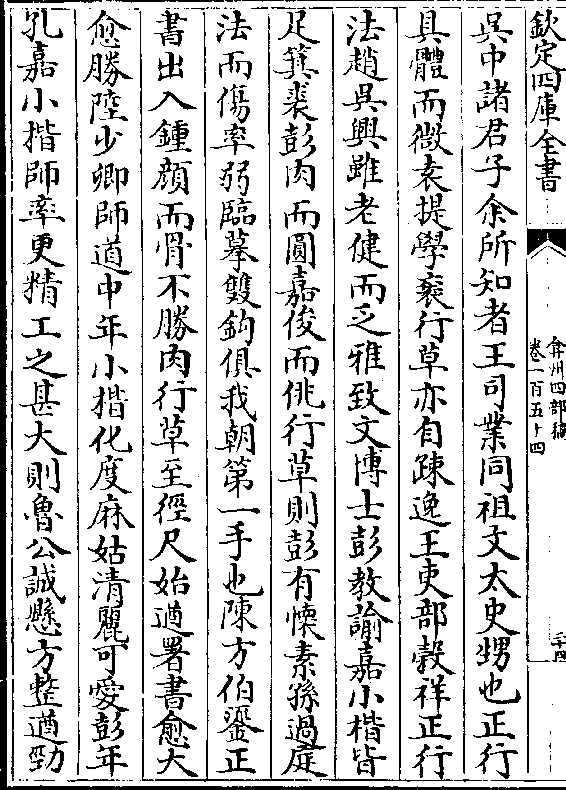 欽定四庫全書
弇州四部稿
卷一百五十四
三十四
吳中諸君子余所知者王司業同祖文太史甥也正行
具體而微袁提學袠行草亦自疎逸王吏部榖祥正行
法趙吳興雖老健而乏雅致文博士彭教諭嘉小楷皆
足箕裘彭肉而圓嘉俊而俳行草則彭有懷素孫過庭
法而傷率弱臨摹雙鉤俱我朝第一手也陳方伯鎏正
書出入鍾顔而骨不勝肉行草至徑尺始遒署書愈大
愈勝陸少卿師道中年小楷化度麻姑清麗可愛彭年
孔嘉小揩師率更精工之甚大則魯公誠懸方整遒勁